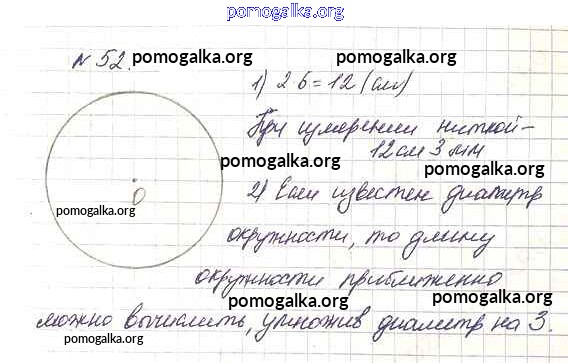 pomogalka.org
№ 52.
pomogalka.org pomogalka.org
1) 2 6 = 12 (см)
При измерении ниткой –
12 см 3 мм
pomogalka.org pomogalka.org
2) Если известен диаметр
O
pomogalka.org
окружности, то длину
окружности приближенно
pomogalka.org pomogalka.org
можно вычислить, умножив диаметр на 3.
pomogalka.org pomogalka.org